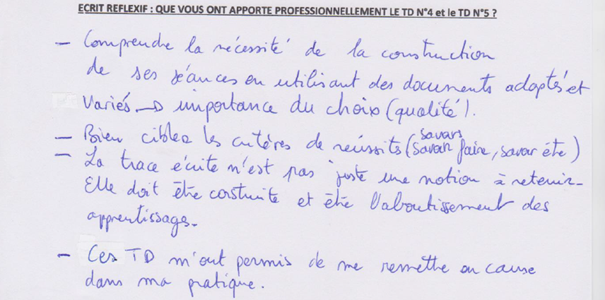 ECRIT REFLEXIF : QUE VOUS ONT APPORTE PROFESSIONNELLEMENT LE TD N°4 et le TD N°5 ?
– Comprendre la nécessité de la construction
de ses séances en utilisant des documents adaptés et
variés → importance du choix (qualité).
– Bien cibler les critères de réussite (savoirs, savoir faire, savoir être)
– La trace écrite n'est pas juste une notion à retenir.
Elle doit être costruite et être l'aboutissement des
apprentissage.
– Ces TD m'ont permis de me remettre en cause
dans ma pratique.